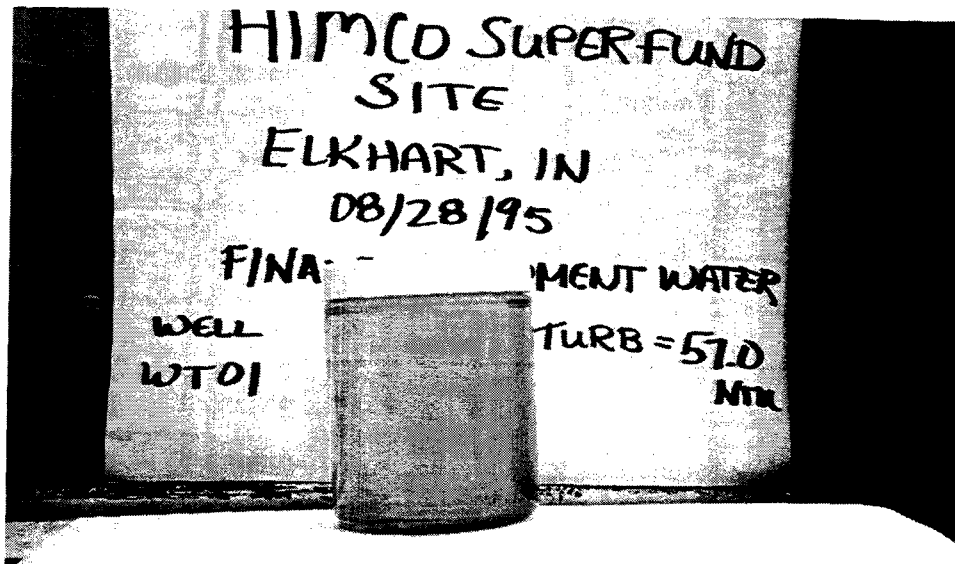 HIMCO SUPERFUND
SITE
ELKHART, IN
08/28/95
FINA PMENT WATER
WELL TURB = 57.0
WT01 NTU